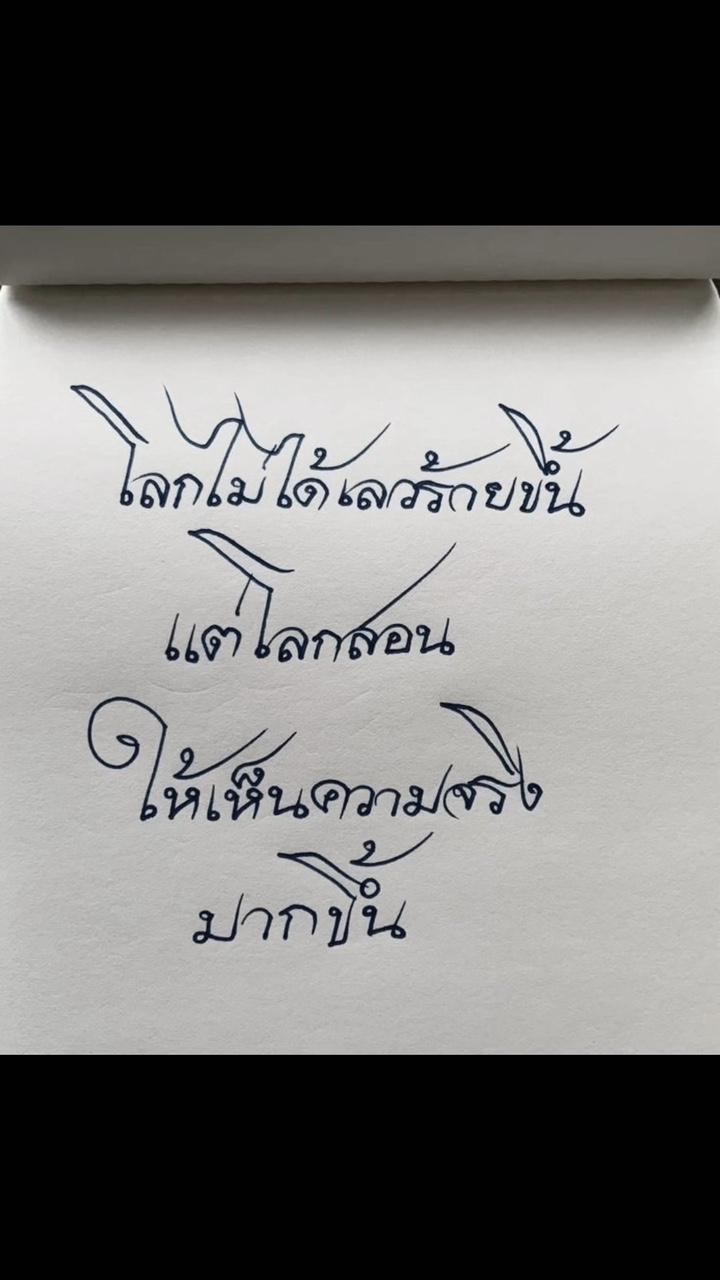 โลกไม่ได้เลวร้ายขึ้น
แต่โลกสอน
ให้เห็นความจริง
มากขึ้น